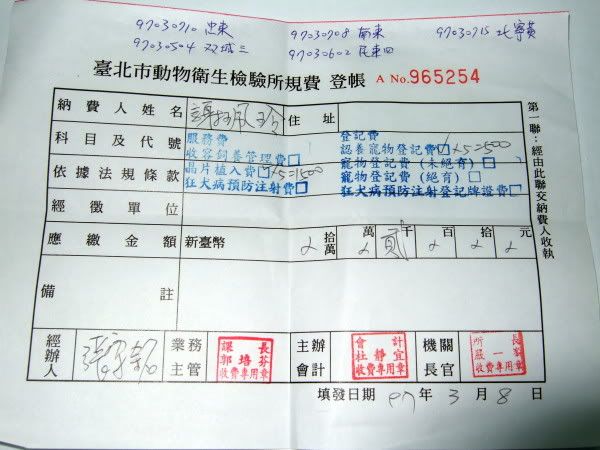 97030710 忠東 97030708 南東 97030715 北寧黃
97030504 双城三 97030602 民東四
臺北市動物衛生檢驗所規費 登帳 A No.965254
納費人姓名 住址
科目及代號 服務費 登記費
收容飼養管理費□ 認養寵物登記費☑ ×5=500
依據法規條款 晶片植入費☑ ×5=1500 寵物登記費(未絕育)□
狂犬病預防注射費□ 寵物登記費(絕育)□
狂犬病預防注射登記牌證費□
經徵單位
應繳金額 新臺幣 拾萬 萬 貳 千 百 拾 元
備註
經辦人 業務主管 課長 郭培芬 收費專用章 主辦會計 會計 杜靜宜 收費專用章 機關長官 所長 嚴一峯 收費專用章
填發日期 97 年 3 月 8 日
第一聯:經由此聯交納費人收執